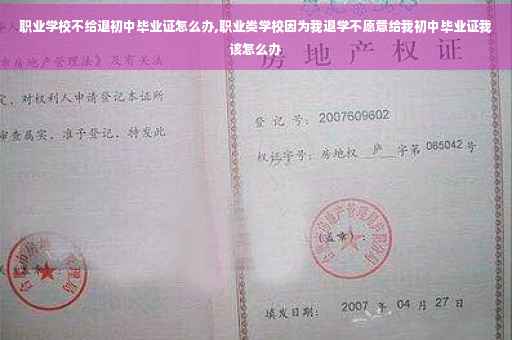 职业学校不给退初中毕业证怎么办,职业类学校因为我退学不愿意给我初中毕业证我
该怎么办
房地产管理法》及有关法
定,对权利人申请登记本证所
审查属实,准予登记,特发此
房地产权
登记号: 2007609602
权证字号: 房地权 庐 字第 085042 号
(盖章):
填发日期: 2007 年 04 月 27 日